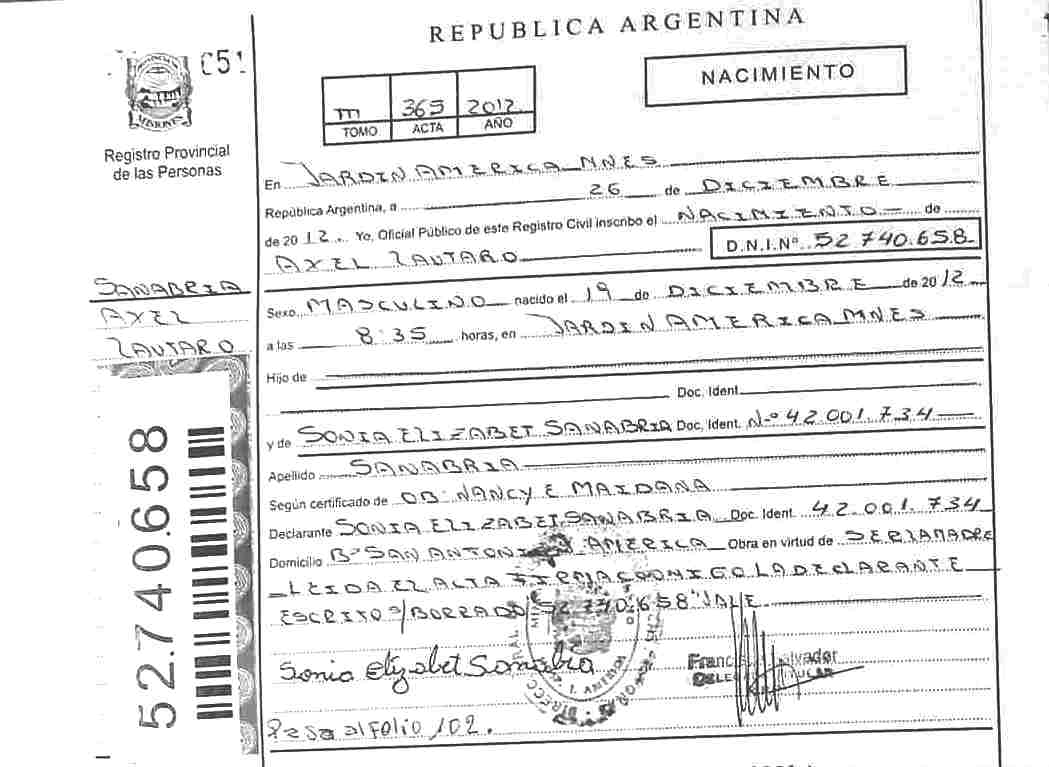 REPUBLICA ARGENTINA
C51
MISIONES
Registro Provincial
de las Personas
NACIMIENTO
m 365 2012
TOMO ACTA AÑO
En JARDIN AMERICA MNES
República Argentina, a 26 de DICIEMBRE
de 2012. Yo, Oficial Público de este Registro Civil inscribo el NACIMIENTO de
AXEL LAUTARO D.N.I.Nº 52 740.658
SANABRIA
AXEL
LAUTARO
Sexo MASCULINO nacido el 19 de DICIEMBRE de 2012
a las 8:35 horas, en JARDIN AMERICA MNES
Hijo de
Doc. Ident.
y de SONIA ELIZABET SANABRIA Doc. Ident. Nº 42.001.734
Apellido SANABRIA
Según certificado de OB: NANCY E MAIDANA
Declarante SONIA ELIZABET SANABRIA Doc. Ident. 42.001.734
Domicilio Bº SAN ANTONIO AMERICA Obra en virtud de SER LA MADRE
LEIDA EL ACTA FIRMA CONMIGO LA DECLARANTE
ESCRITO S/BORRADO "52 740.658" VALE
Sonia Elizabet Sanabria
Franc Salvador
DELEG TITULAR
Pasa al Folio 102.
52.740.658